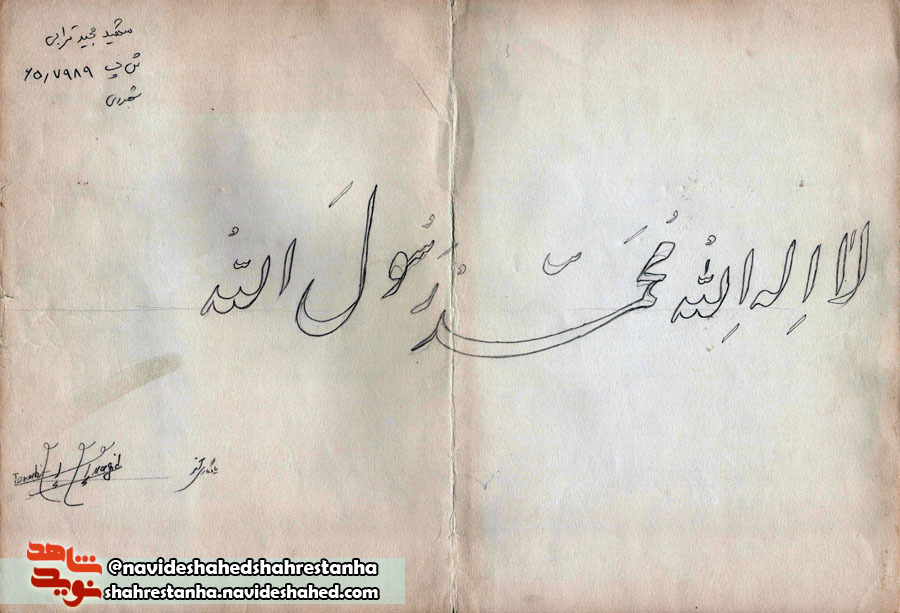 شهید مجید ترابی
ش پ ۶۵/۷۹۸۹
شهرری
لا اِله اِللّهُ مُحَمّد رَسُولَ اللّهُ
شاهد
نوید
@navideshahedshahrestanha
shahrestanha.navideshahed.com